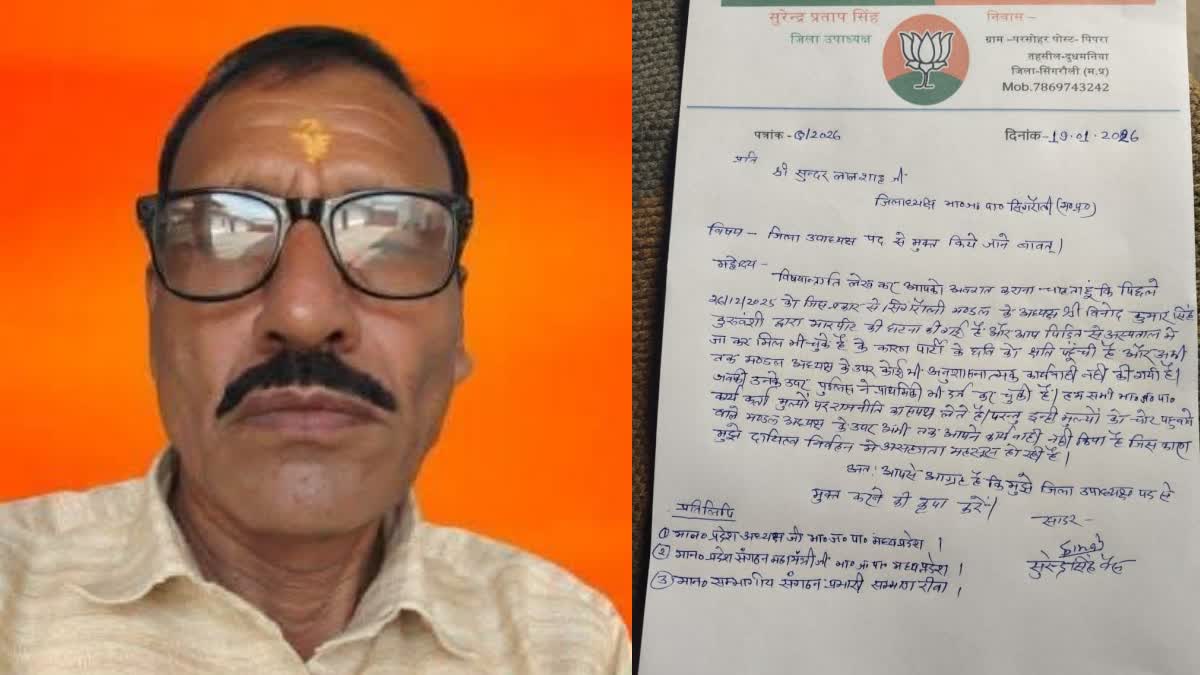 सुरेन्द्र प्रताप सिंह
जिला उपाध्यक्ष
निवास –
ग्राम –परसोहर पोस्ट- पिपरा
तहसील-दुधमनिया
जिला-सिंगरौली (म.प्र)
Mob.7869743242
पत्रांक-/2026
दिनांक-19.01.2026
प्रति
श्री सुन्दर लाल शाह जी
जिलाध्यक्ष भा०ज० पा० सिंगरौली (म०प्र०)
विषय – जिला उपाध्यक्ष पद से मुक्त किये जाने बावत्।
महोदय –
विषयान्तर्गत लेख कर आपको अवगत कराना चाहता हूं कि पिछले
26/12/2025 को जिस प्रकार से सिंगरौली मण्डल के अध्यक्ष श्री विनोद कुमार सिंह
कुरुवंशी द्वारा मारपीट की घटना की गई है और आप पिड़ित से अस्पताल में
जा कर मिल भी चुके है के कारण पार्टी के छवि को क्षति पहुंची है और अभी
तक मण्डल अध्यक्ष के उपर कोई भी अनुशासनात्मक कार्यवाही नहीं की गयी है।
जबकी उनके उपर पुलिस ने प्राथमिकी भी दर्ज कर चुकी है। हम सभी भा०ज०पा०
कार्य कर्ता मुल्यों पर राजनीति का शपथ लेते है। परन्तु इन्ही मुल्यों को चोट पहुचाने
वाले मण्डल अध्यक्ष के उपर अभी तक आपने कार्यवाही नही किया है जिस कारण
मुझे दायित्व निर्वहन में असहजता महसूस हो रही है।
अतः आपसे आग्रह है कि मुझे जिला उपाध्यक्ष पद से
मुक्त करने की कृपा करें।
सादर –
प्रतिलिपि
① मान० प्रदेश अध्यक्ष जी भा०ज०पा० मध्यप्रदेश ।
② मान० प्रदेश संगठन महामंत्री जी भा०ज०पा० मध्यप्रदेश ।
③ मान० सम्भागीय संगठन प्रभारी सम्भाग रीवा ।
सुरेन्द्र सिंह